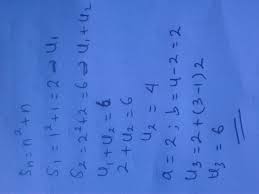 Sn = n²+n
S₁ = 1²+1 = 2 ⇒ U₁
S₂ = 2²+2 = 6 ⇒ U₁+U₂
U₁+U₂ = 6
2+U₂ = 6
U₂ = 4
a = 2 ; b = 4-2 = 2
U₃ = 2+(3-1)2
U₃ = 6